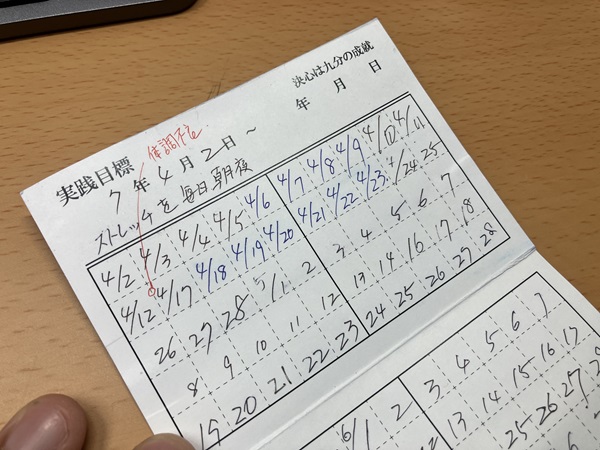 決心は九分の成就
実践目標
体調不良
7年4月2日～ 年 月 日
ストレッチを毎日朝夜
4/2 4/3 4/4 4/5 4/6 4/7 4/8 4/9 4/11
4/12 4/17 4/18 4/19 4/20 4/21 4/22 4/23 4/24 25
26 27 28 5/1 2 3 4 5 6 7
8 9 10 11 12 13 14 16 17 18
19 20 21 22 23 24 25 26 27 28
6/1 2 3 4 5 6 7
12 13 14 15 16 17
25 26 27